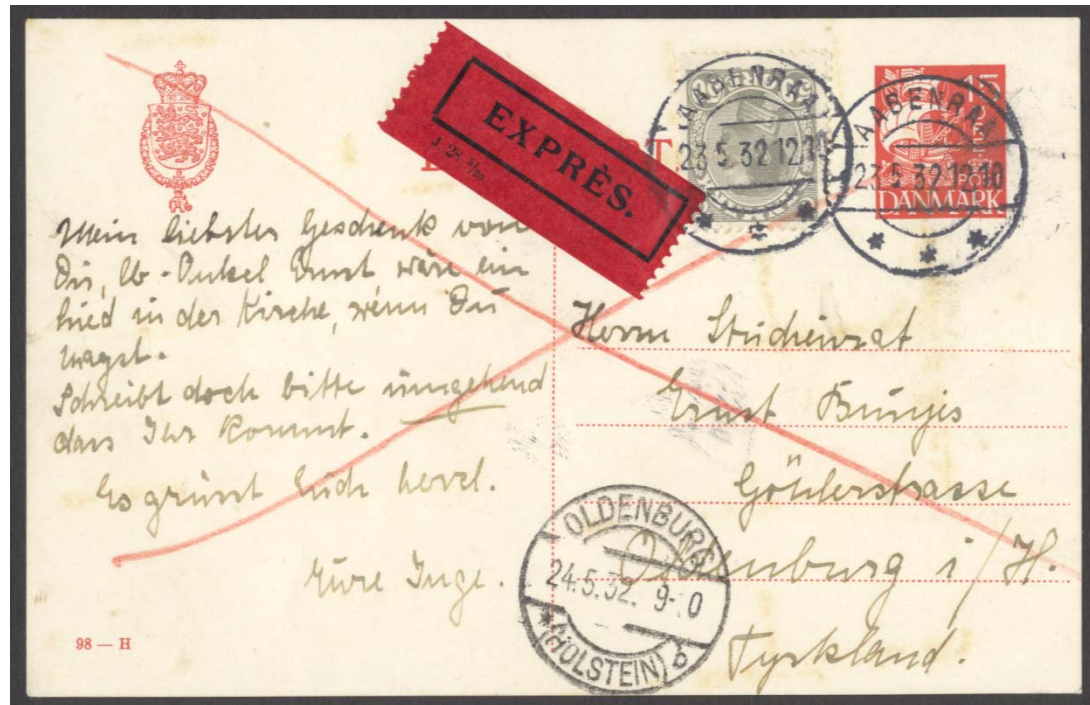 EXPRÈS.
AABENRAA
23.5.32 12.10
AABENRAA
23.5.32 12.10
15
DANMARK
Mein liebstes Geschenk von
Dir, lb. Onkel Ernst wäre ein
Lied in der Kirche, wenn Du
magst.
Schreibt doch bitte umgehend
dass Ihr kommt.
Es grüsst Euch herzl.
Eure Inge.
Herrn Studienrat
Ernst
Göhlerstrasse
Oldenburg i/H.
Tyskland.
OLDENBURG
24.5.32. 9-10
(HOLSTEIN)
98 — H